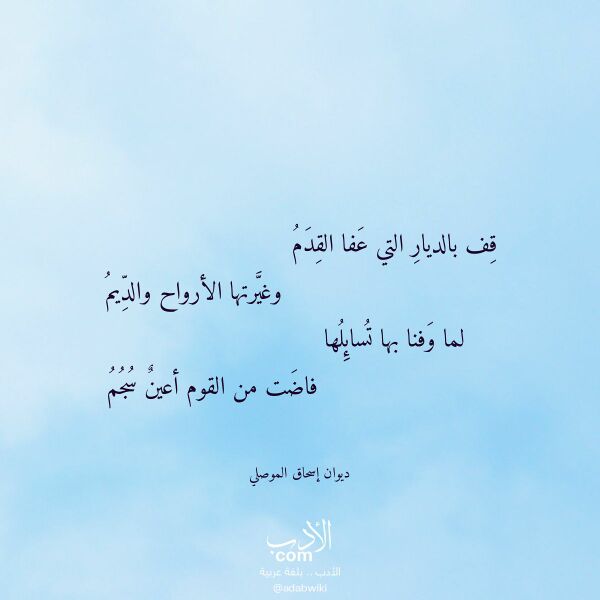 قِف بالديارِ التي عَفا القِدَمُ
وغيَّرتها الأرواح والدِّيمُ
لما وَفنا بها تُسائِلُها
فاضَت من القوم أعينٌ سُجُمُ
ديوان إسحاق الموصلي
الأدب
com
الأدب .. بلغة عربية
@adabwiki